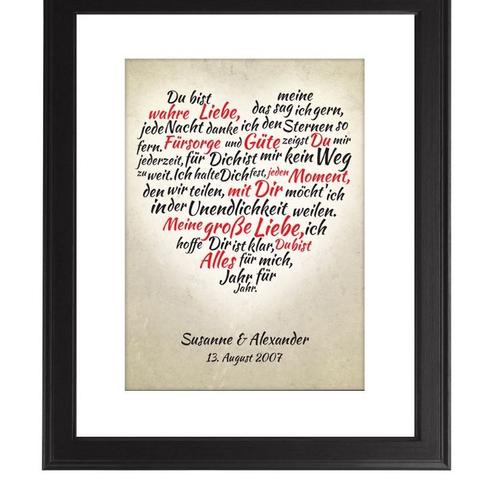 Du bist meine
wahre Liebe, das sag ich gern,
jede Nacht danke ich den Sternen so
fern. Fürsorge und Güte zeigst Du mir
jederzeit, für Dich ist mir kein Weg
zu weit. Ich halte Dich fest, jeden Moment,
den wir teilen, mit Dir möcht' ich
in der Unendlichkeit weilen.
Meine große Liebe, ich
hoffe Dir ist klar, Du bist
Alles für mich,
Jahr für
Jahr.
Susanne & Alexander
13. August 2007